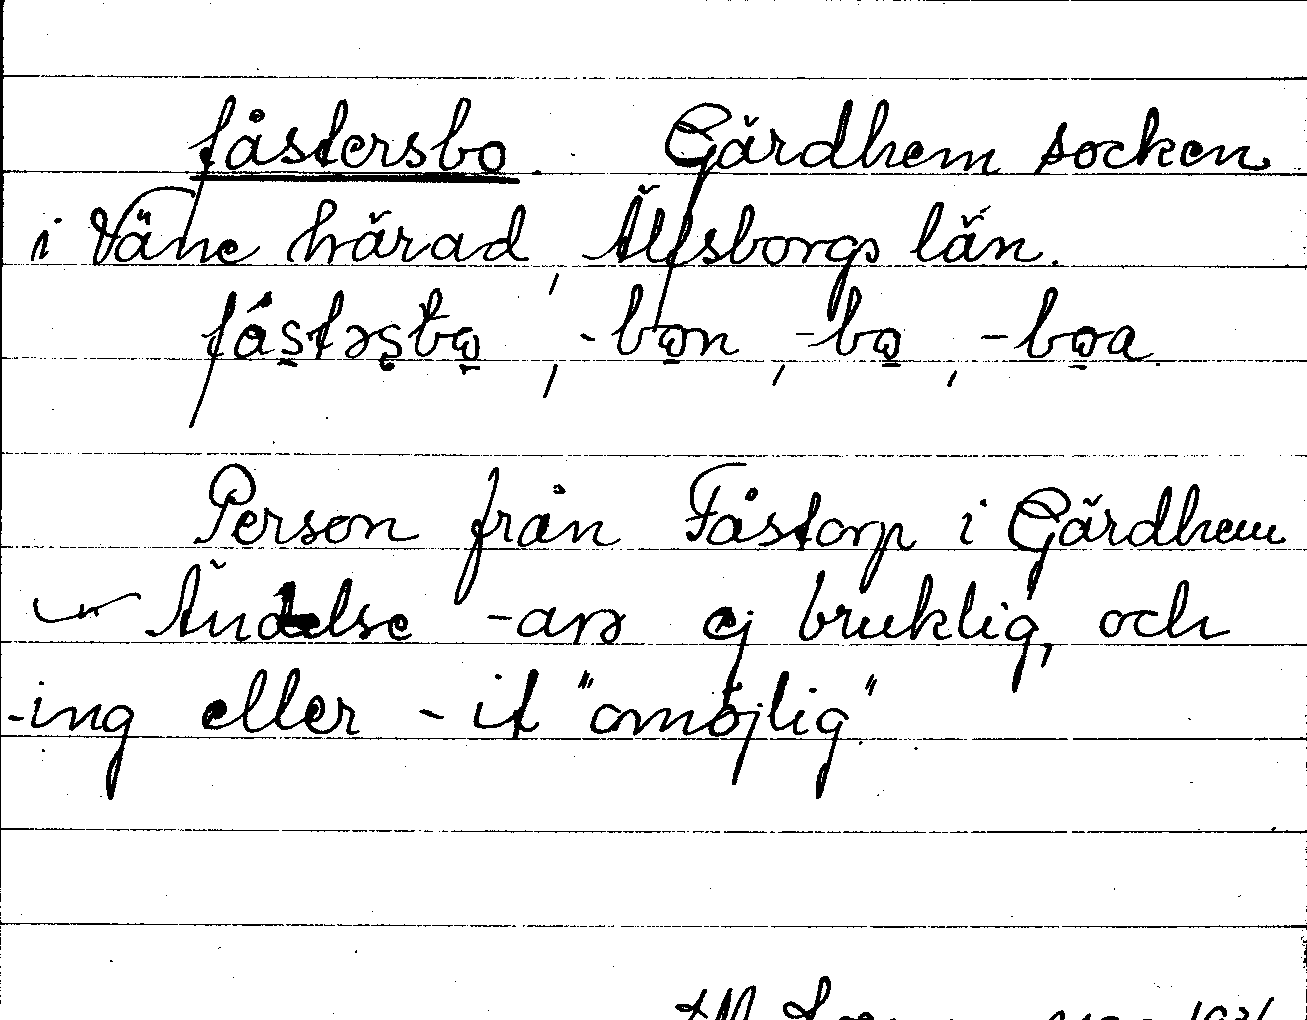 fåstersbo. Gärdhem socken
i Väne härad, Älfsborgs län.
-bo̤n, -bo̤, -bo̤a.
Person från Fåstorp i Gärdhem
Ändelse -arə ej bruklig, och
-ing eller -it "omöjlig"